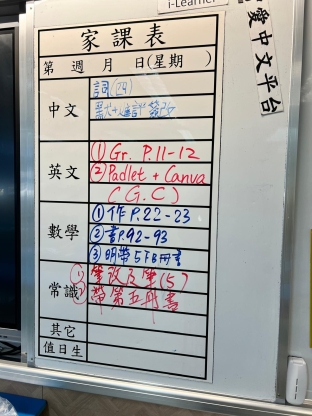 i-Learner
愛中文平台
家課表
第 週 月 日(星期 )
中文
詞(24)
默書
簽改
英文
① Gr. P.11-12
② Padlet + Canva
(G.C)
數學
① 作P.22-23
② 書P.92-93
③ 明帶5下B冊書
常識
① 簽改及筆(5)
② 帶第五冊書
其它
值日生